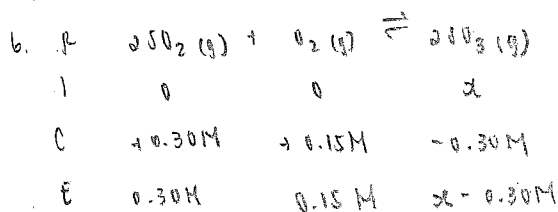 6. R 2SO₂ (g) + O₂ (g) ⇌ 2SO₃ (g)
I 0 0 x
C +0.30M +0.15M -0.30M
E 0.30M 0.15M x-0.30M